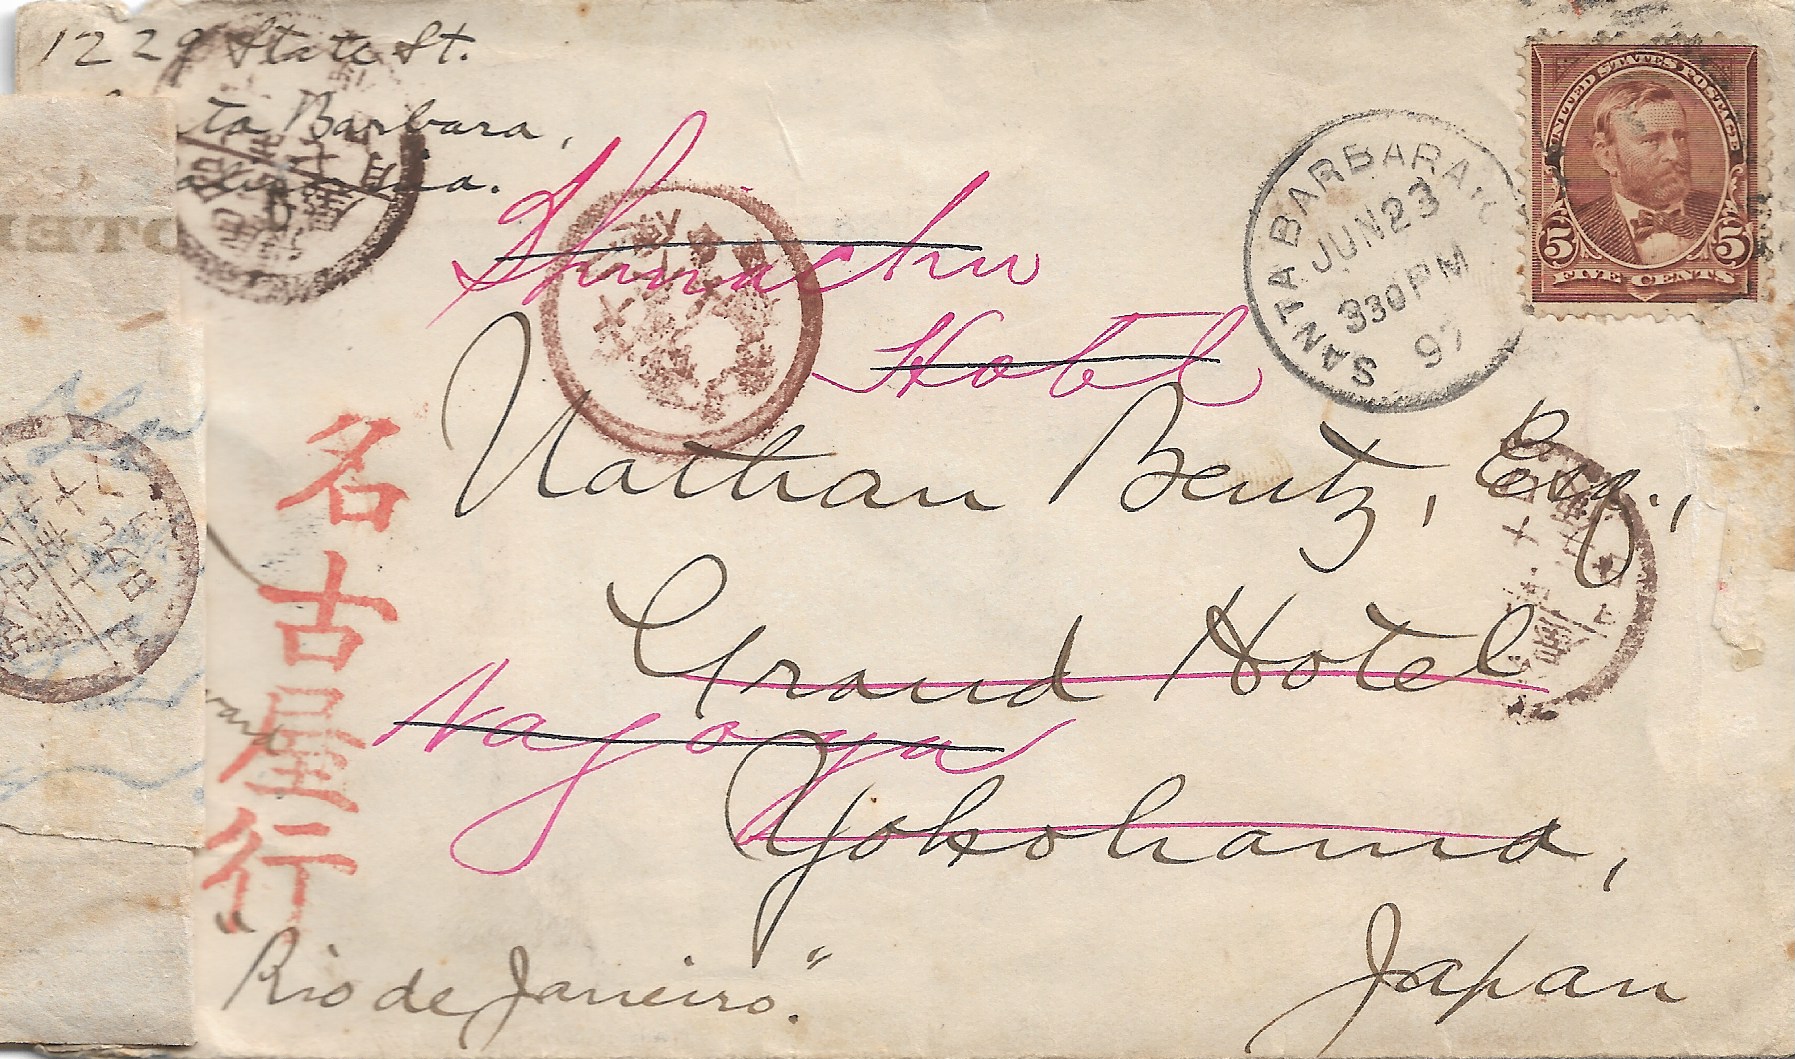 1229 State St.
ta Barbara,
UNITED STATES POSTAGE
5 5
FIVE CENTS
SANTA BARBARA
JUN 23
330 PM
97
Hotel
Nathan Bentz, Esq.,
Grand Hotel
Nagoya
Yokohama,
Japan
名古屋行
Rio de Janeiro."